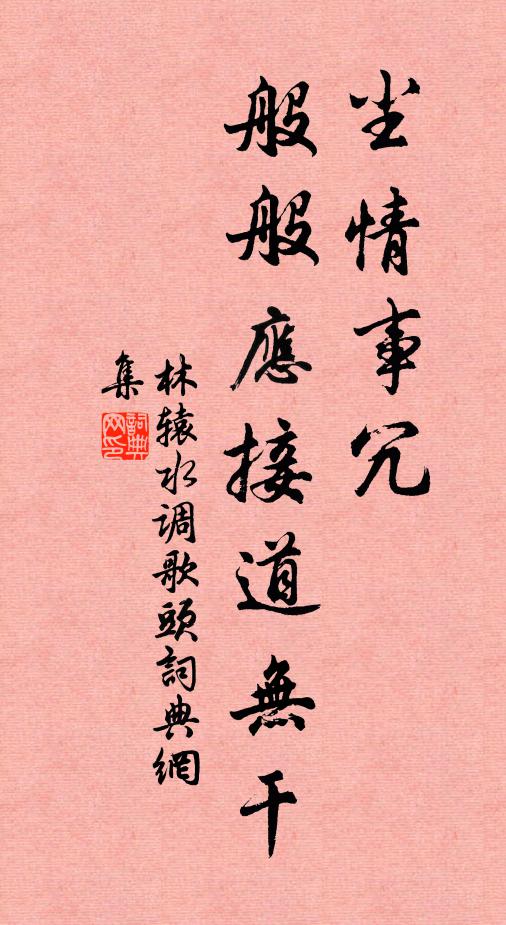 尘情事冗
般般應接道無干
林辕水调歌頭詞典網
集
詞典网印